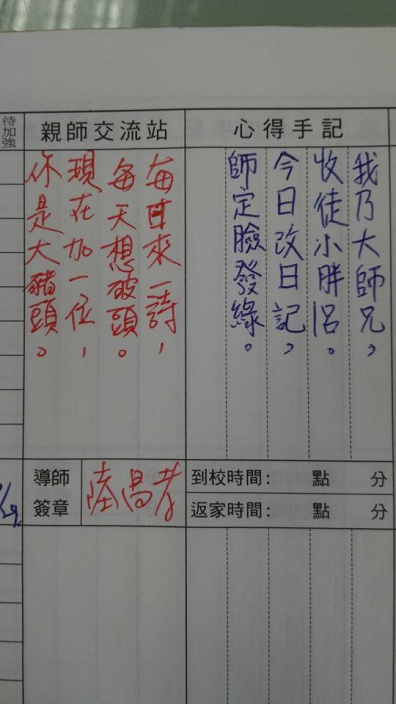 待加強
親師交流站
心得手記
我乃大師兄，
收徒小胖呂。
今日改日記，
師定臉發綠。
每日來一詩，
每天想破頭。
現在加一位，
你是大豬頭。
導師
簽章
陸昌孝
到校時間： 點 分
返家時間： 點 分